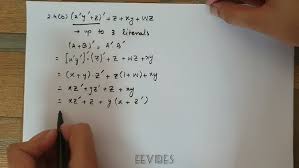 2.4(b) (x'y'+z)'+z+xy+wz
→ up to 3 literals
(A+B)' = A'B'
= [x'y']'(z)'+z+wz+xy
= (x+y)·z'+z(1+w)+xy
= xz'+yz'+z+xy
= xz'+z+y(x+z')
=
EEVIBES